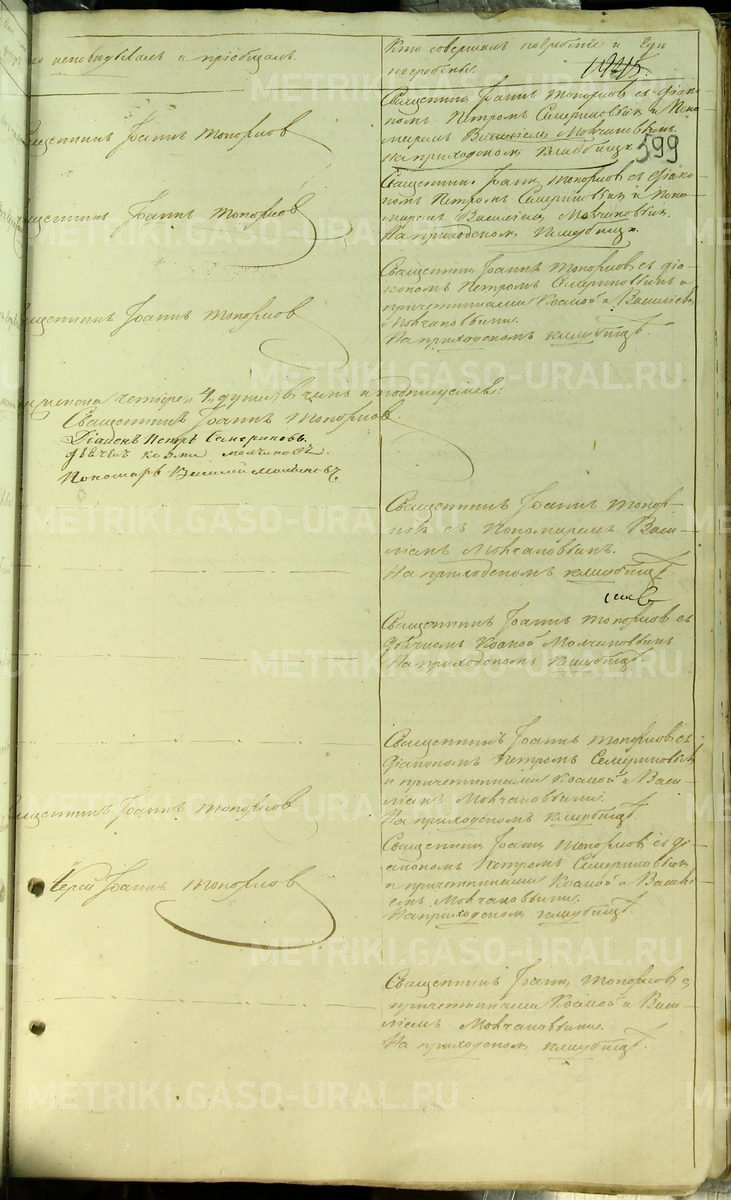 исповѣдывалъ и пріобщалъ.
Кто совершалъ погребеніе и гдѣ
погребены.
599
Священникъ Іоаннъ Топорковъ съ діако-
номъ Петромъ Семериковымъ и Поно-
маремъ Василіемъ Молчановымъ.
На приходскомъ кладбищѣ.
Священникъ Іоаннъ Топорковъ
Священ. Іоаннъ Топорковъ съ діако-
номъ Петромъ Семериковымъ и Поно-
маремъ Василіемъ Молчановымъ.
На приходскомъ кладбищѣ.
Священникъ Іоаннъ Топорковъ
Священникъ Іоаннъ Топорковъ съ діа-
кономъ Петромъ Семериковымъ и
причетниками Космой и Василіемъ
Молчановыми.
На приходскомъ кладбищѣ.
Священникъ Іоаннъ Топорковъ
четыре, 4, души, въ чемъ и подписуемся:
Священникъ Іоаннъ Топорковъ.
Діаконъ Петръ Семериковъ.
дьячекъ козма молчановъ.
Пономарь Василий Молчановъ
Священникъ Іоаннъ Топор-
ковъ съ Пономаремъ Васи-
ліемъ Молчановымъ.
На приходскомъ кладбищѣ.
Священникъ Іоаннъ Топорковъ съ
дьячкомъ Космой Молчановымъ
На приходскомъ кладбищѣ.
Священникъ Іоаннъ Топорковъ съ
діакономъ Петромъ Семериковымъ
и причетниками Космой и Васи-
ліемъ Молчановыми.
На приходскомъ кладбищѣ.
Священникъ Іоаннъ Топорковъ
Священникъ Іоаннъ Топорковъ съ ді-
акономъ Петромъ Семериковымъ
и причетниками Космой и Васили-
емъ Молчановыми.
На приходскомъ кладбищѣ.
Іерей Іоаннъ Топорковъ
Священникъ Іоаннъ Топорковъ съ
причетниками Космой и Васи-
ліемъ Молчановыми.
На приходскомъ кладбищѣ.
METRIKI.GASO-URAL.RU